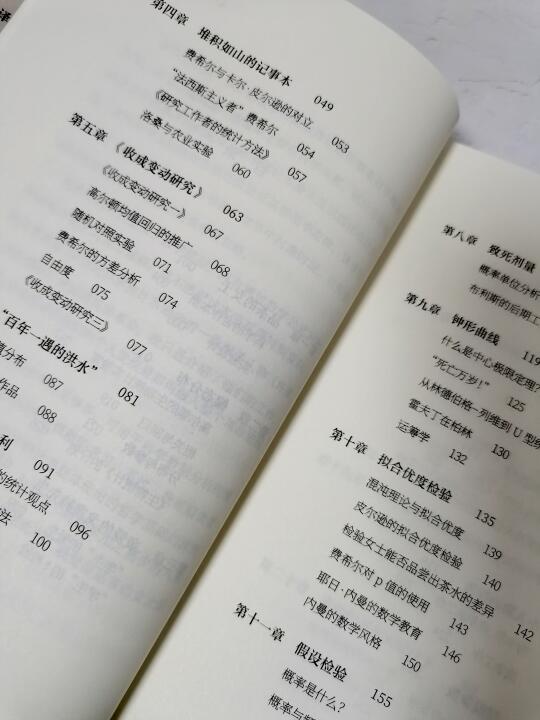 译
第四章 堆积如山的记事本 049
费希尔与卡尔·皮尔逊的对立 053
“法西斯主义者”费希尔 054
《研究工作者的统计方法》 057
洛桑与农业实验 060
第五章 《收成变动研究》 063
《收成变动研究一》 067
高尔顿均值回归的推广 068
随机对照实验 071
费希尔的方差分析 074
自由度 075
《收成变动研究三》 077
“百年一遇的洪水” 081
分布 087
作品 088
利 091
的统计观点 096
法 100
第八章 致死剂量
概率单位分析
布利斯的后期工
第九章 钟形曲线 119
什么是中心极限定理？
“死亡万岁！” 125
从林德伯格-列维到 U 型统
霍夫丁在柏林 130
运筹学 132
第十章 拟合优度检验 135
混沌理论与拟合优度 139
皮尔逊的拟合优度检验 140
检验女士能否品尝出茶水的差异 142
费希尔对 p 值的使用 143
耶日·内曼的数学教育 146
内曼的数学风格 150
第十一章 假设检验 155
概率是什么？
概率与